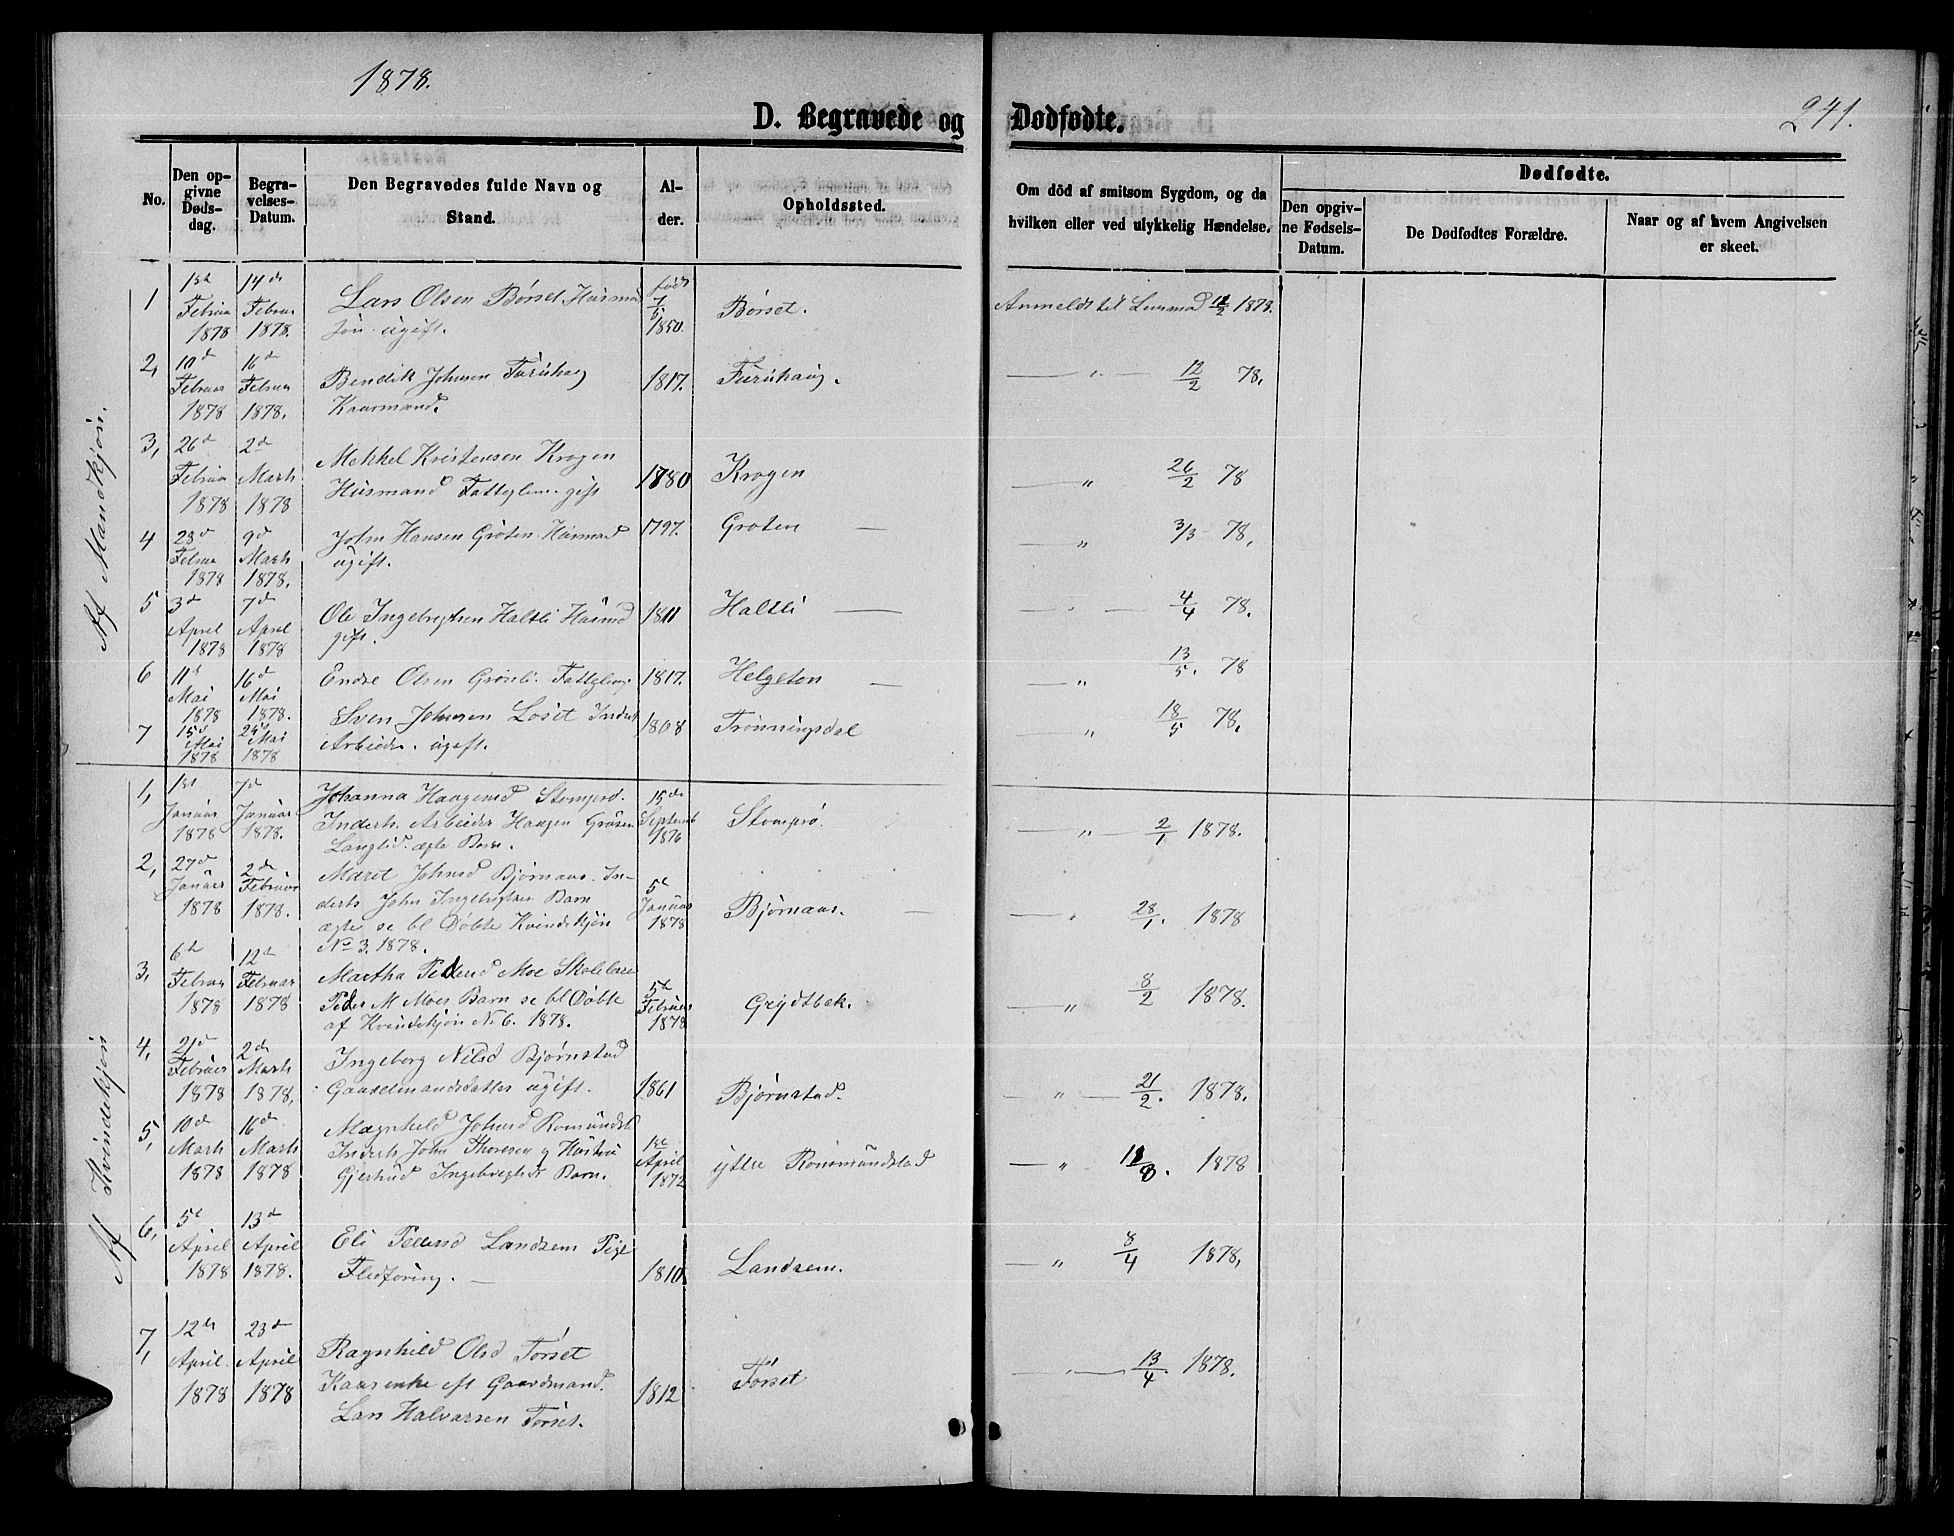 1878.
241.
D. Begravede og Dødfødte.
No.
Den opgivne Døds-dag.
Begravelses-Datum.
Den Begravedes fulde Navn og Stand.
Alder.
Opholdssted.
Om död af smitsom Sygdom, og da hvilken eller ved ulykkelig Hændelse.
Dødfødte.
Den opgivne Fødsels-Datum.
De Dødfødtes Forældre.
Naar og af hvem Angivelsen er skeet.
Af Mandkjøn.
1 Februar 1878 14de Februar 1878. Lars Olsen Børset født 1850. Børset. Anmeldt til 1878.
ugift.
2, 10d Februar 1878 16d Februar 1878. Bendik Johnsen Furuhaug 1817. Furuhaug. 12/2 78.
Kaarmand.
3, 26d Februar 1878 2d Marts 1878 Mekkel Kristensen Krogen 1780 Krogen 26/2 78
Husmand gift
4 28d Februar 1878 9d Marts 1878. John Hansen Grøten Husmand 1797. Groten 3/3 78.
ugift.
5 3d April 1878 7d April 1878 Ole Ingebrigtsen Haltli 1811 Haltli 4/4 78.
gift.
6 11d Mai 1878 16d Mai 1878. Endre Olsen Grønli 1817. Helgeton 13/5. 78
7 15d Mai 1878 24d Mai 1878 Sven Johnsen Løset Inderst 1808 Trønningsdal 18/5 78.
Arbeider. ugift.
Af Kvindekjøn
1, 1st Januar 1878 7d Januar 1878. Johanna Haagensd 15de September 1876 Stomprø. 2/1 1878.
Inderts. Arbeider Haagen
ægte Barn.
2, 27d Januar 1878 2d Februar 1878. Maret Johnsd Bjørnaas. In- 5d Januar 1878 Bjørnaas. 28/1. 1878
derts John Ingebrigtsen Barn
ægte se bl Døbte Kvindekjøn
No 3. 1878.
3, 6d Februar 1878 12d Februar 1878 Martha Pedersd Moe Skolelærer 5d Februar 1878 Grydtbæk. 8/2 1878.
Peder M Moes Barn se bl Døbte
af Kvindekjøn No 6. 1878.
4, 21d Februar 1878 2d Marts 1878. Ingeborg Nilsd Bjørnstad 1861 Bjørnstad. 21/2. 1878.
Gaardmandsdatter ugift.
5, 10d Marts 1878 16d Marts 1878 Magnhild Johnsd Romundstad 1st April 1872 ytre Rommundstad 1878
Inderts John Thoresen og Hustru
Gjertrud Ingebrigtsdr Barn.
6, 5d April 1878 13d April 1878. Eli Pedersd Landsem Pige 1810 Landsem. 8/4 1878.
Fledføring.
7, 12de April 1878 23d April 1878 Ragnhild Olsd Torset 1812 Torset 13/4. 1878.
Kaarenke eft Gaardmand.
Lars Halvorsen Torset.